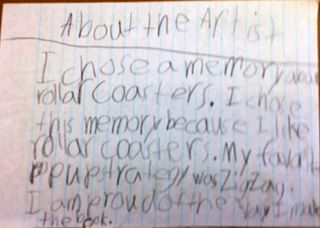 About the Artist
I chose a memory about
rollar coasters. I chose
this memory because I like
rollar coasters. My favorit
popup strategy was ZigZag.
I am proud of the way I make
the book.